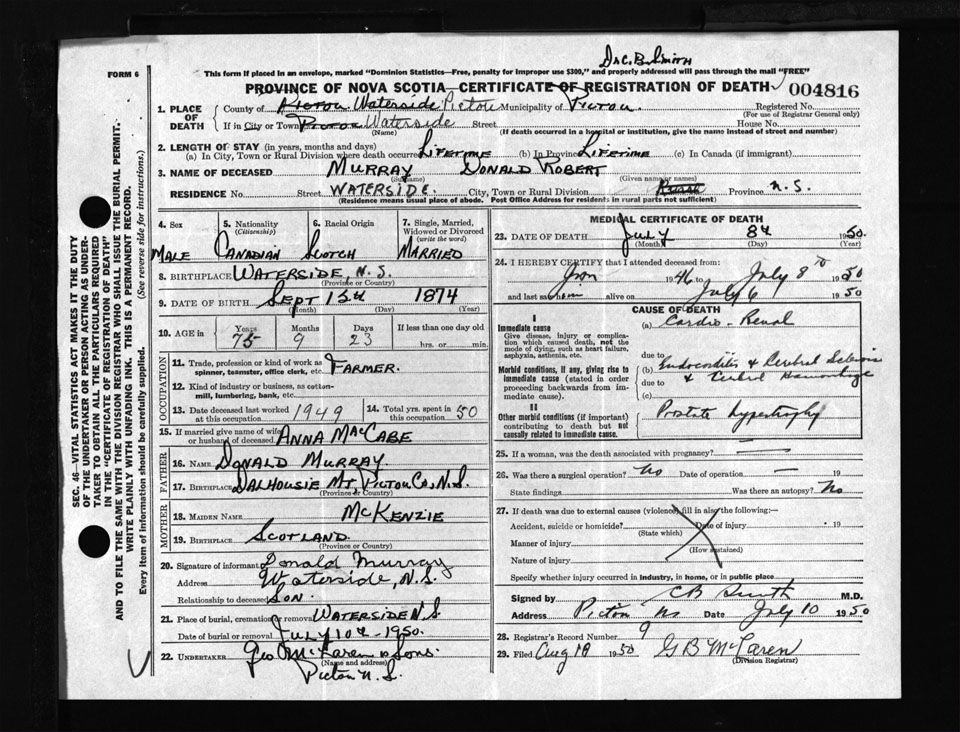 Dr C. B. Smith
FORM 6
This form if placed in an envelope, marked "Dominion Statistics—Free, penalty for improper use $300," and properly addressed will pass through the mail "FREE"
PROVINCE OF NOVA SCOTIA—CERTIFICATE OF REGISTRATION OF DEATH
004816
1. PLACE OF DEATH
County of Waterside Pictou Municipality of Pictou Registered No.
(For use of Registrar General only)
If in City or Town Pictou Waterside Street House No.
(Name) (If death occurred in a hospital or institution, give the name instead of street and number)
2. LENGTH OF STAY (in years, months and days)
(a) In City, Town or Rural Division where death occurred LIFETIME (b) In Province LIFETIME (c) In Canada (if immigrant)
3. NAME OF DECEASED MURRAY DONALD ROBERT
(Surname) (Given name or names)
RESIDENCE No. Street WATERSIDE. City, Town or Rural Division Province N.S.
(Residence means usual place of abode. Post Office Address for residents in rural parts not sufficient)
4. Sex 5. Nationality (Citizenship) 6. Racial Origin 7. Single, Married, Widowed or Divorced (write the word)
MALE CANADIAN SCOTCH MARRIED
8. BIRTHPLACE WATERSIDE, N.S.
(Province or Country)
9. DATE OF BIRTH SEPT 15th 1874
(Month) (Day) (Year)
10. AGE in Years Months Days If less than one day old
75 9 23 hrs. or min.
OCCUPATION
11. Trade, profession or kind of work as spinner, teamster, office clerk, etc. FARMER.
12. Kind of industry or business, as cotton-mill, lumbering, bank, etc.
13. Date deceased last worked at this occupation 1949 14. Total yrs. spent in this occupation 50
15. If married give name of wife or husband of deceased ANNA MACCABE
FATHER
16. NAME DONALD MURRAY
17. BIRTHPLACE DALHOUSIE MT, PICTOU CO, N.S.
(Province or Country)
MOTHER
18. MAIDEN NAME MCKENZIE
19. BIRTHPLACE SCOTLAND.
(Province or Country)
20. Signature of informant Donald Murray
Address Waterside, N.S.
Relationship to deceased SON.
21. Place of burial, cremation or removal WATERSIDE N.S
Date of burial or removal JULY 10th-1950.
22. UNDERTAKER Geo McLaren & Sons.
(Name and address)
Pictou N.S.
MEDICAL CERTIFICATE OF DEATH
23. DATE OF DEATH July 8th 1950.
(Month) (Day) (Year)
24. I HEREBY CERTIFY that I attended deceased from
from 1946 to July 8th 1950
and last saw him alive on July 6 1950
CAUSE OF DEATH
I
Immediate cause
Give disease, injury or complication which caused death, not the mode of dying, such as heart failure, asphyxia, asthenia, etc.
(a) Cardio-Renal
due to
Morbid conditions, if any, giving rise to immediate cause (stated in order proceeding backwards from immediate cause).
(b) Endocarditis & Cerebral Sclerosis
due to & Cerebral Hemorrhage
(c)
II
Other morbid conditions (if important) contributing to death but not causally related to immediate cause.
Prostate Hypertrophy
25. If a woman, was the death associated with pregnancy? —
26. Was there a surgical operation? No Date of operation — 19
State findings Was there an autopsy? No
27. If death was due to external causes (violence) fill in also the following:—
Accident, suicide or homicide? Date of injury 19
(State which)
Manner of injury
(How sustained)
Nature of injury
Specify whether injury occurred in industry, in home, or in public place
Signed by CB Smith M.D.
Address Pictou NS Date July 10 1950
28. Registrar's Record Number 9
29. Filed Aug 18 1950 G B McLaren
(Division Registrar)
SEC. 46—VITAL STATISTICS ACT MAKES IT THE DUTY
OF THE UNDERTAKER OR PERSON ACTING AS UNDER-
TAKER TO OBTAIN ALL THE PARTICULARS REQUIRED
IN THE "CERTIFICATE OF REGISTRATION OF DEATH"
AND TO FILE THE SAME WITH THE DIVISION REGISTRAR WHO SHALL ISSUE THE BURIAL PERMIT.
WRITE PLAINLY WITH UNFADING INK. THIS IS A PERMANENT RECORD.
Every item of information should be carefully supplied. (See reverse side for instructions.)